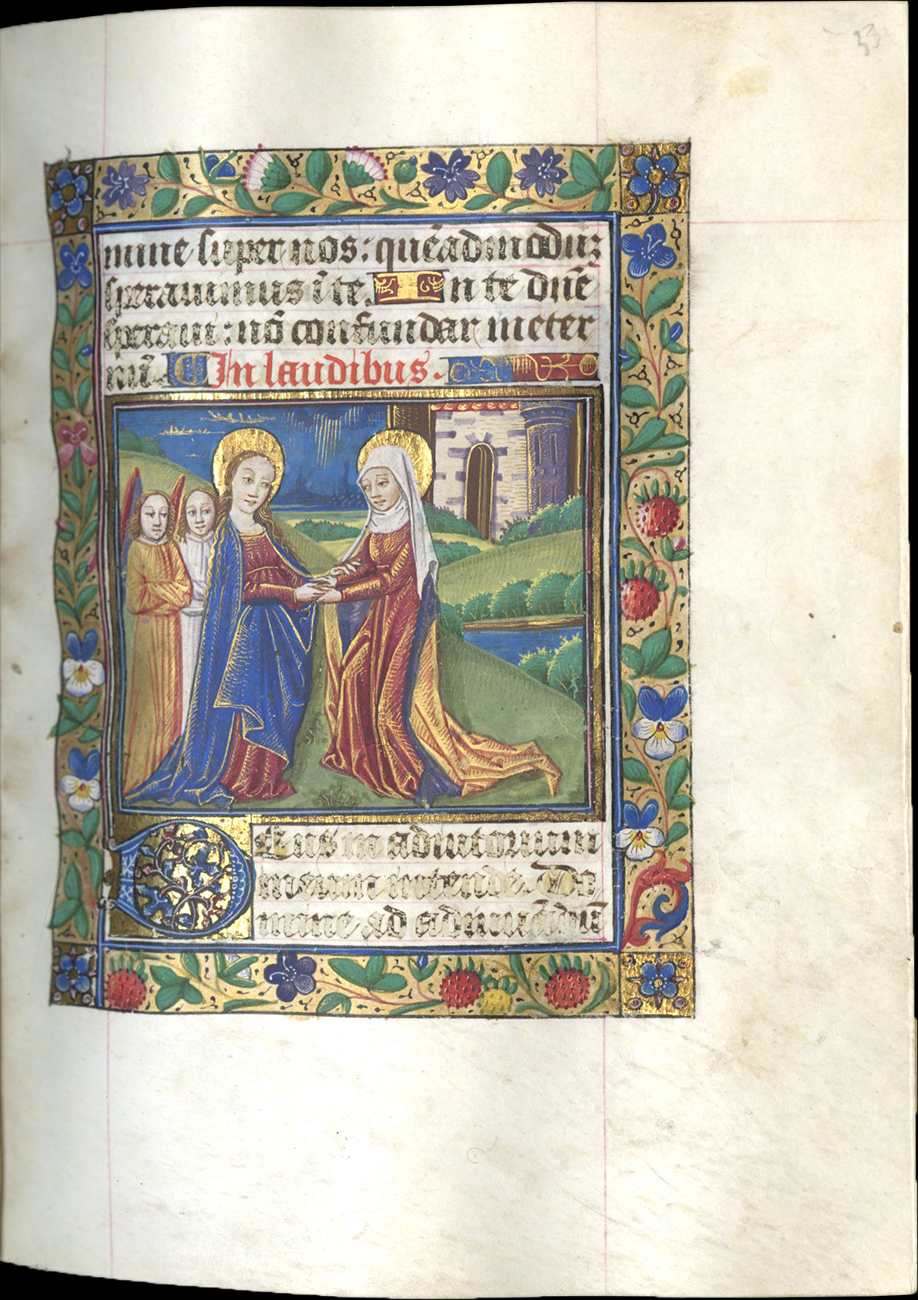 33
mine super nos: quēadmoduȝ
sperauimus ī te. In te dn̄e
speraui: nō confundar meter
nū. In laudibus.
Deus in adiutorium
meum intende. Do
mine ad adiuuādū